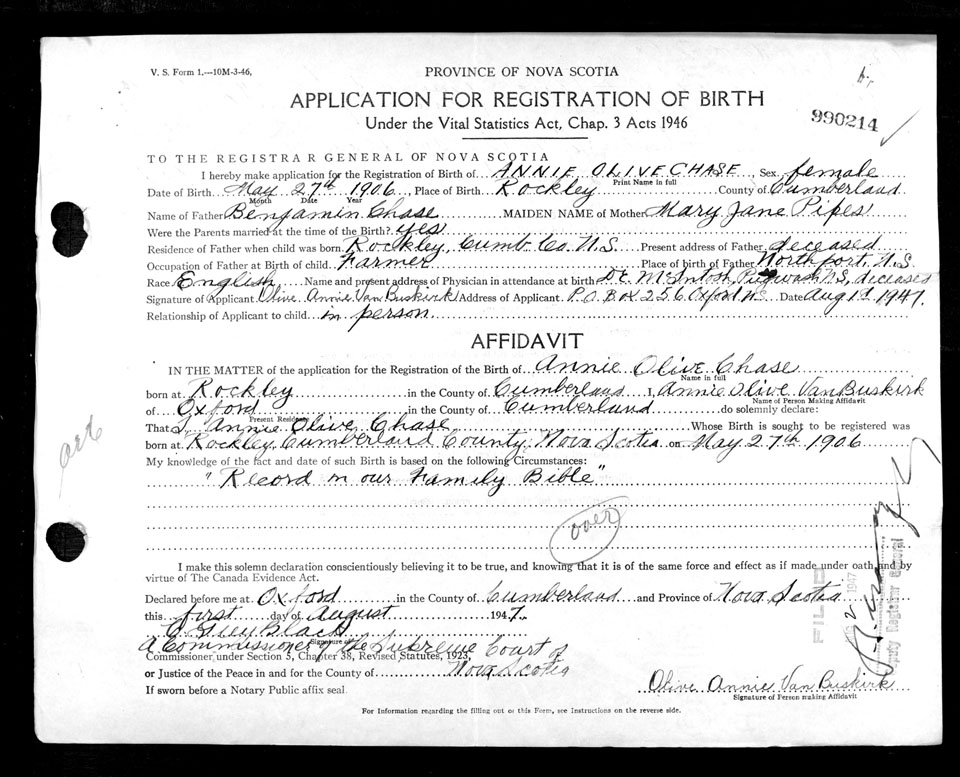 V. S. Form 1.---10M-3-46,
PROVINCE OF NOVA SCOTIA
APPLICATION FOR REGISTRATION OF BIRTH
990214
Under the Vital Statistics Act, Chap. 3 Acts 1946
TO THE REGISTRAR GENERAL OF NOVA SCOTIA
I hereby make application for the Registration of Birth of ANNIE OLIVE CHASE, Sex female
Print Name in full
Date of Birth May 27th 1906, Place of Birth Rockley County of Cumberland
Month Date Year
Name of Father Benjamin Chase MAIDEN NAME of Mother Mary Jane Pipes
Were the Parents married at the time of the Birth? yes
Residence of Father when child was born Rockley, Cumb. Co. N.S. Present address of Father deceased
Occupation of Father at Birth of child Farmer Place of birth of Father Northport, N.S.
Race English Name and present address of Physician in attendance at birth Dr. McIntosh, Pugwash N.S, deceased
Signature of Applicant Olive Annie Van Buskirk Address of Applicant P.O. Box 256 Oxford N.S. Date Aug 1st 1947.
Relationship of Applicant to child in person
AFFIDAVIT
IN THE MATTER of the application for the Registration of the Birth of Annie Olive Chase
Name in full
born at Rockley in the County of Cumberland I, Annie Olive VanBuskirk
Name of Person Making Affidavit
of Oxford in the County of Cumberland do solemnly declare:
Present Residence
That I, Annie Olive Chase Whose Birth is sought to be registered was
born at Rockley, Cumberland County, Nova Scotia on May 27th 1906
My knowledge of the fact and date of such Birth is based on the following Circumstances:
"Record in our Family Bible"
over
I make this solemn declaration conscientiously believing it to be true, and knowing that it is of the same force and effect as if made under oath, and by
virtue of The Canada Evidence Act.
Declared before me at Oxford in the County of Cumberland and Province of Nova Scotia
this first day of August 1947.
Black
Signature of
A Commissioner of the Supreme Court of
Commissioner, under Section 5, Chapter 38, Revised Statutes, 1923,
or Justice of the Peace in and for the County of Nova Scotia
If sworn before a Notary Public affix seal.
Olive Annie Van Buskirk
Signature of Person making Affidavit
For Information regarding the filling out of this Form, see Instructions on the reverse side.
FILED
2 1947
Deputy Registrar General